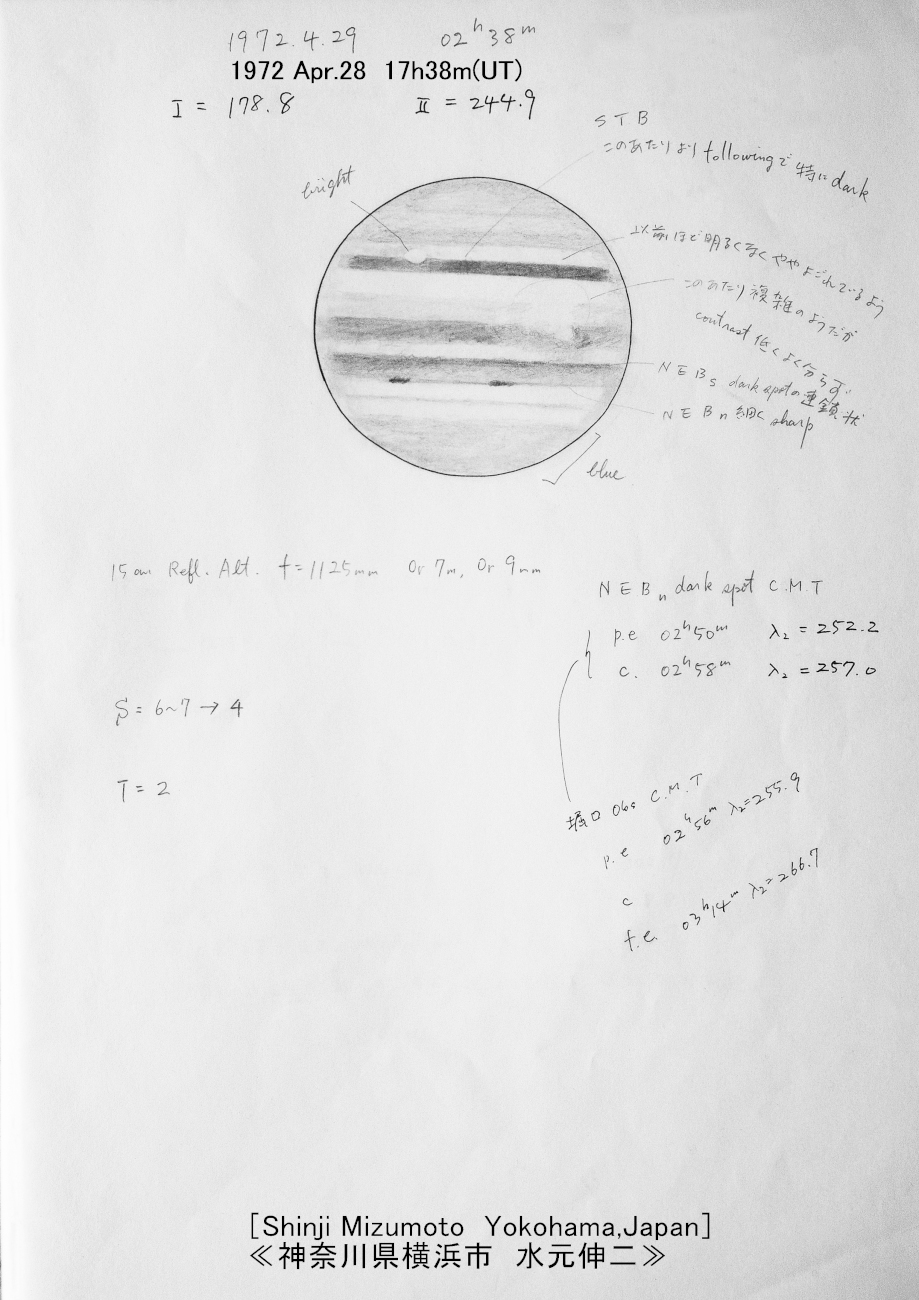 1972.4.29 02h38m
1972 Apr.28 17h38m(UT)
I = 178.8 II = 244.9
STB
このあたりより following で 特に dark
bright
以前ほど明るくなく やや よごれているよう
このあたり 複雑のようだが
contrast 低くよく分らず
NEBs dark spotの連鎖状
NEBn 細く sharp
blue
15cm Refl. Alt. f=1125mm Or 7mm, Or 9mm
NEBn dark spot C.M.T
p.e 02h50m λ2 = 252.2
c. 02h58m λ2 = 257.0
S = 6~7 → 4
T = 2
堀口 Obs C.M.T
p.e 02h56m λ2=255.9
c
f.e. 03h14m λ2=266.7
[Shinji Mizumoto Yokohama,Japan]
≪神奈川県横浜市 水元伸二≫